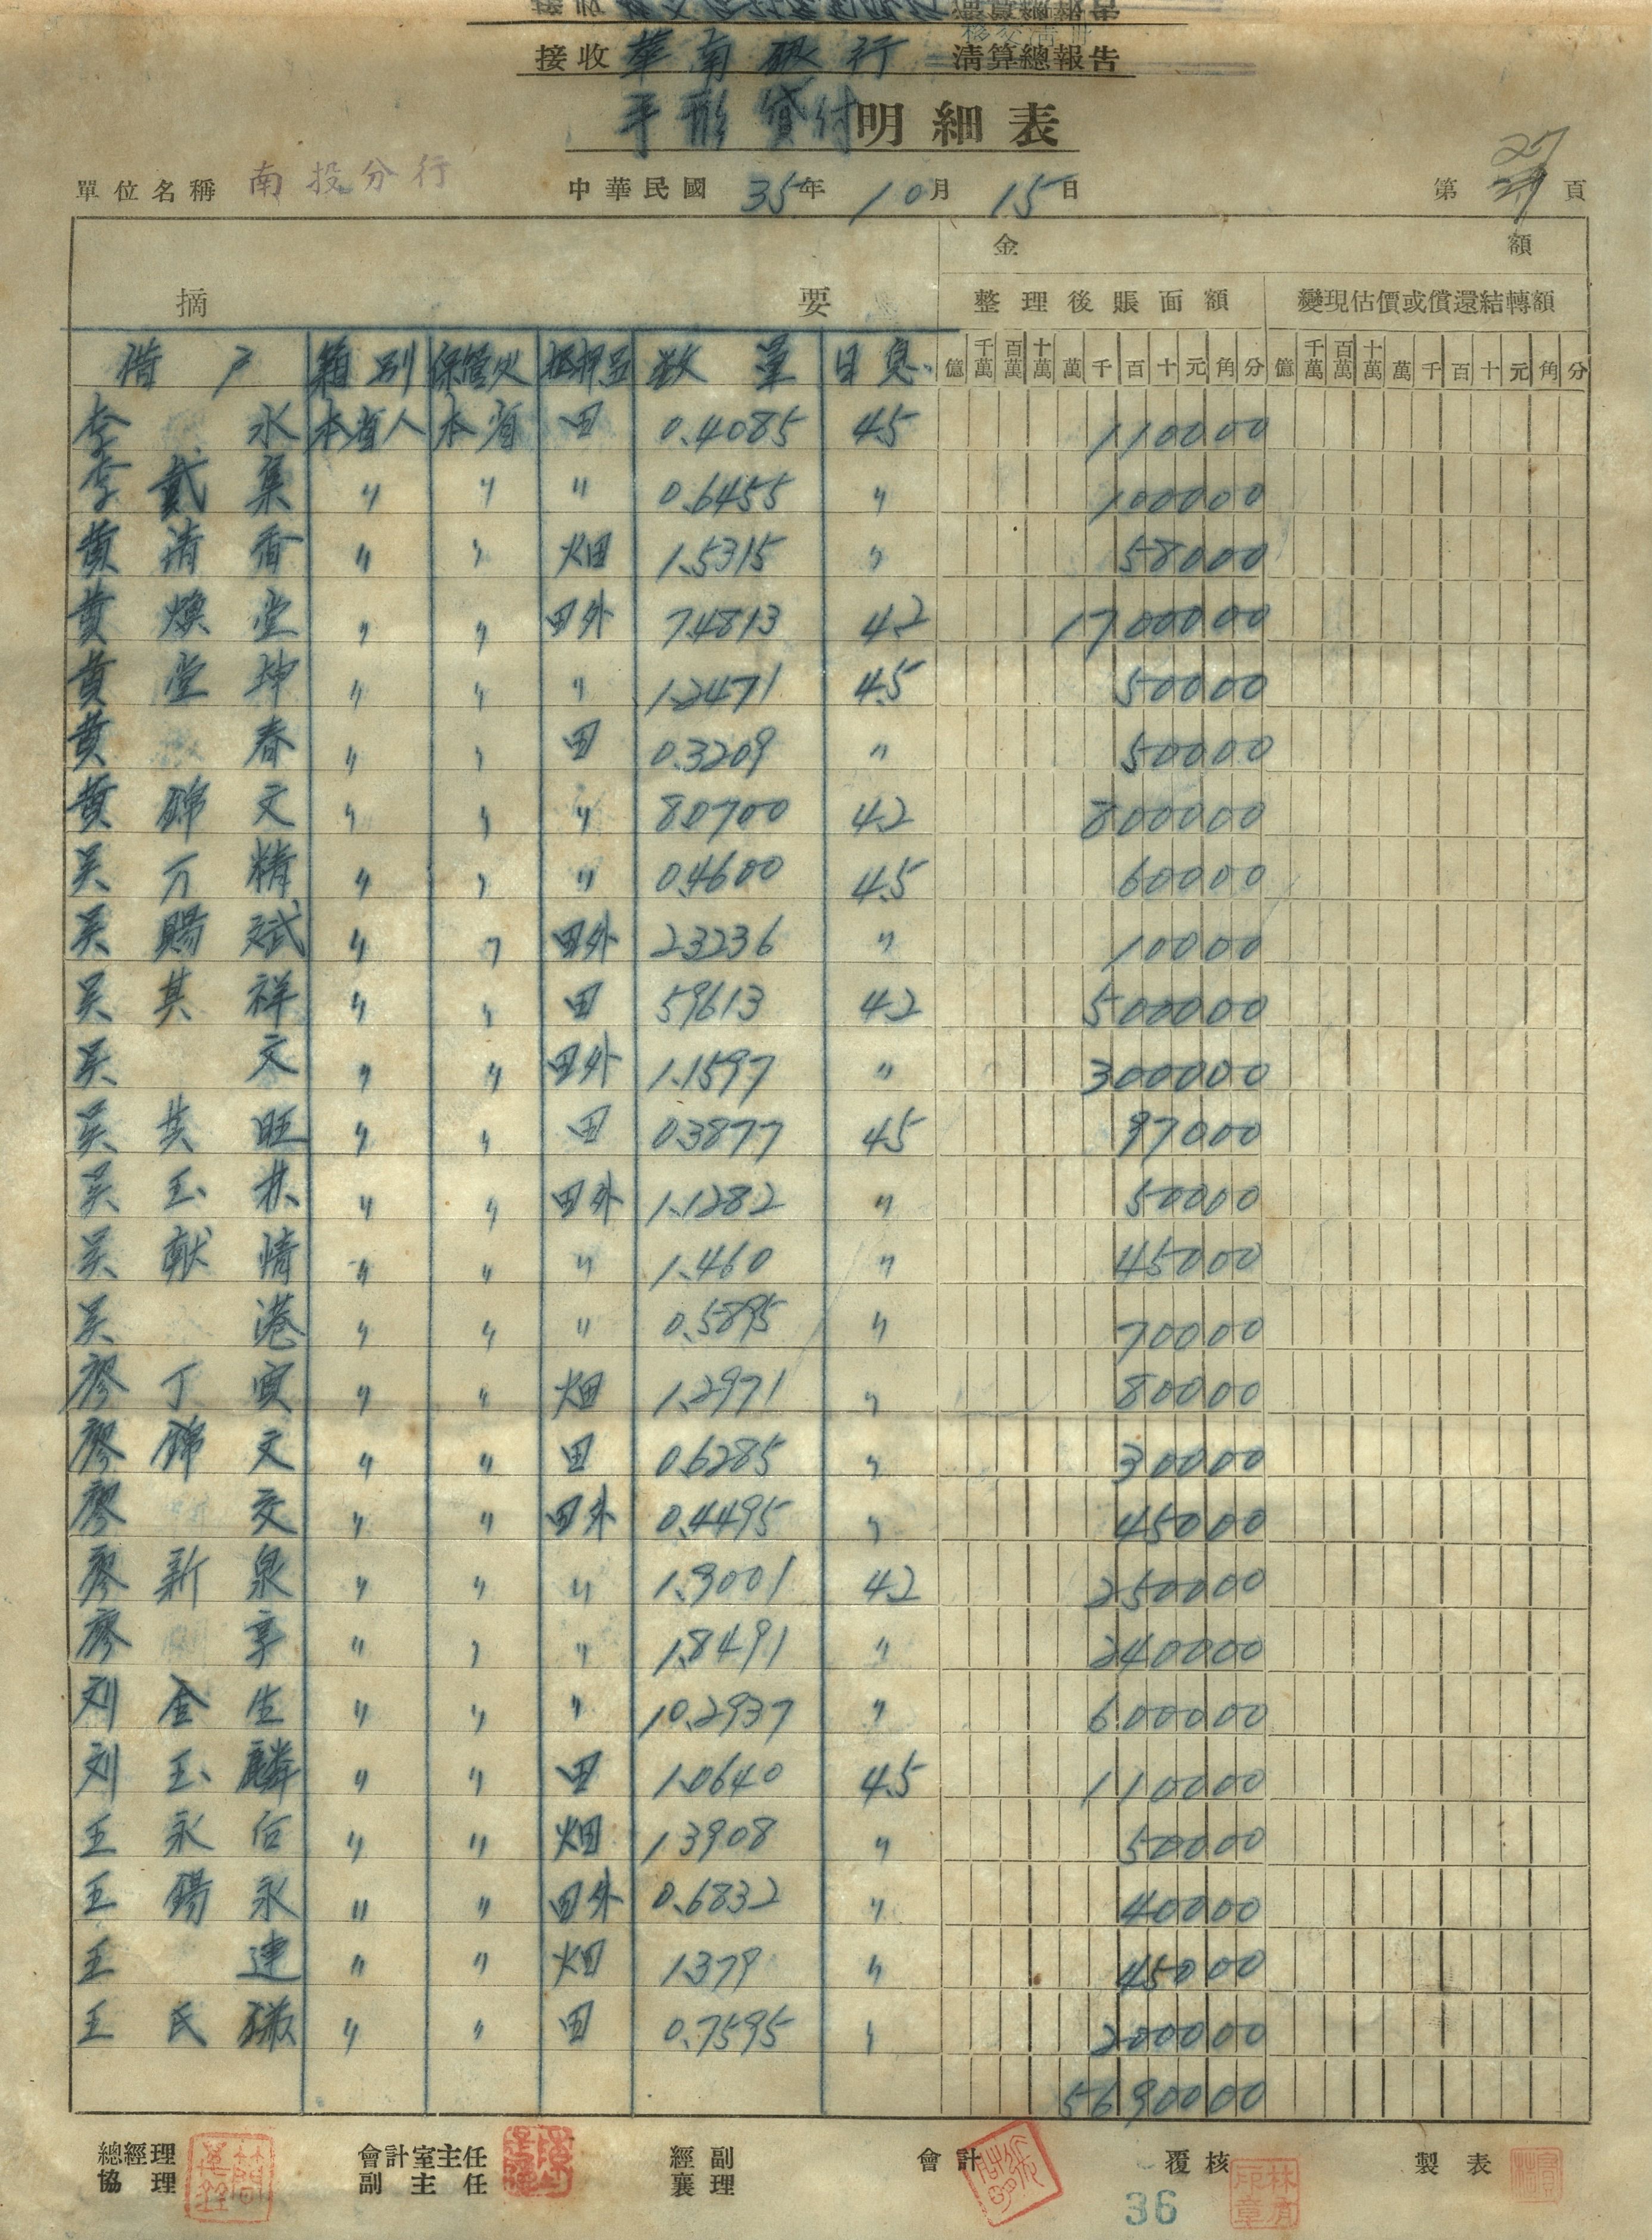 接收 華南銀行 清算總報告
手形貸付明細表
單位名稱 南投分行 中華民國 35年 10月 15日 第 27 頁
金 額
摘 要 整理後賬面額 變現估價或償還結轉額
借戶 籍別 保管處 抵押品 数量 日息 億 千萬 百萬 十萬 萬 千 百 十 元 角 分 億 千萬 百萬 十萬 萬 千 百 十 元 角 分
李 水 本省人 本省 田 0.4085 4.5 110000
李戴集 〃 〃 〃 0.6455 〃 100000
黄清香 〃 〃 畑 1.5315 〃 58000
黄煥堂 〃 〃 田外 7.4813 4.2 1700000
黄堂坤 〃 〃 〃 1.2471 4.5 50000
黄 春 〃 〃 田 0.3209 〃 50000
黄錦文 〃 〃 〃 8.0700 4.2 800000
吴万精 〃 〃 〃 0.4600 4.5 60000
吴賜斌 〃 〃 田外 2.3236 〃 10000
吴其祥 〃 〃 田 5.9613 4.2 500000
吴 文 〃 〃 田外 1.1597 〃 300000
吴共旺 〃 〃 田 0.3877 4.5 97000
吴玉林 〃 〃 田外 1.1282 〃 50000
吴献情 〃 〃 〃 1.460 〃 45000
吴 港 〃 〃 〃 0.5895 〃 70000
廖丁寅 〃 〃 畑 1.2971 〃 80000
廖錦文 〃 〃 田 0.6285 〃 30000
廖 交 〃 〃 田外 0.4495 〃 45000
廖新泉 〃 〃 〃 1.9001 4.2 250000
廖 享 〃 〃 〃 1.8491 〃 240000
刘金生 〃 〃 〃 10.2937 〃 600000
刘玉麟 〃 〃 田 1.0640 4.5 110000
王永台 〃 〃 畑 1.3908 〃 50000
王錫永 〃 〃 田外 0.6832 〃 40000
王 連 〃 〃 畑 1.379 〃 45000
王氏 〃 〃 田 0.7595 〃 200000
5690000
總經理 會計室主任 經副 會計 覆核 製表
協理 副主任 襄理
36